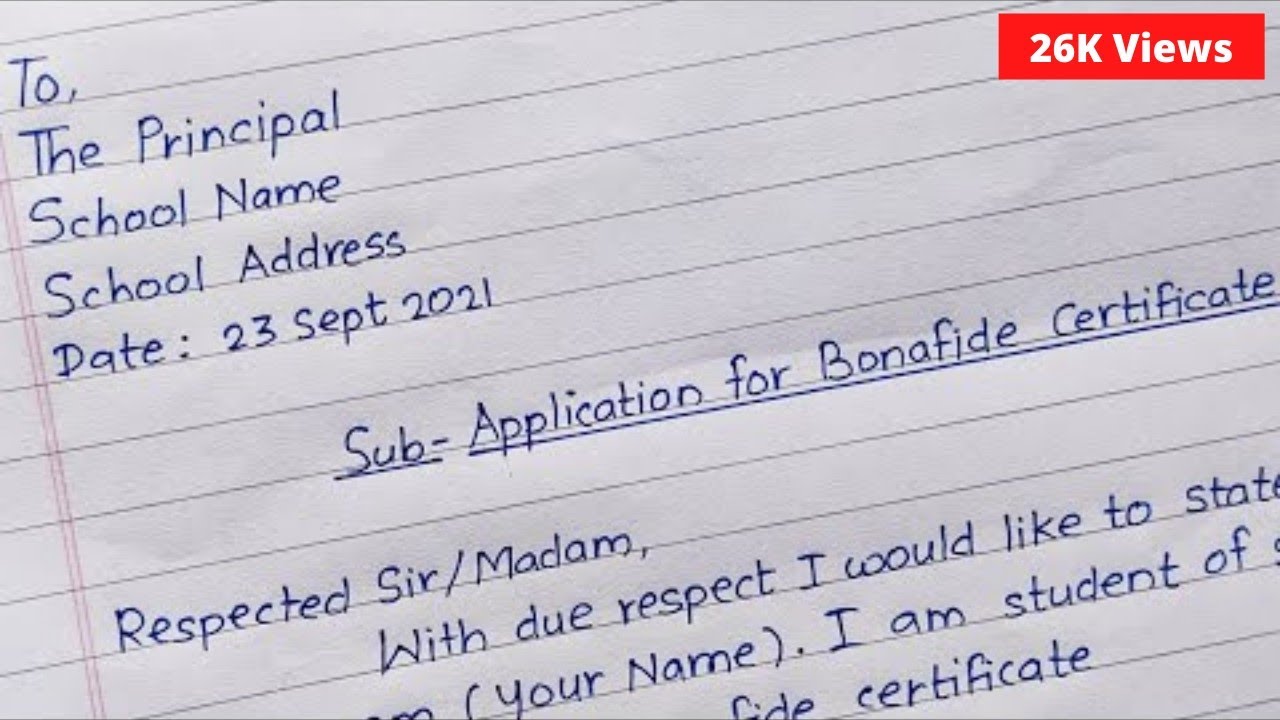 26K Views
To,
The Principal
School Name
School Address
Date: 23 Sept 2021
Sub:- Application for Bonafide Certificate
Respected Sir/Madam,
With due respect I would like to state
(Your Name). I am student of
certificate